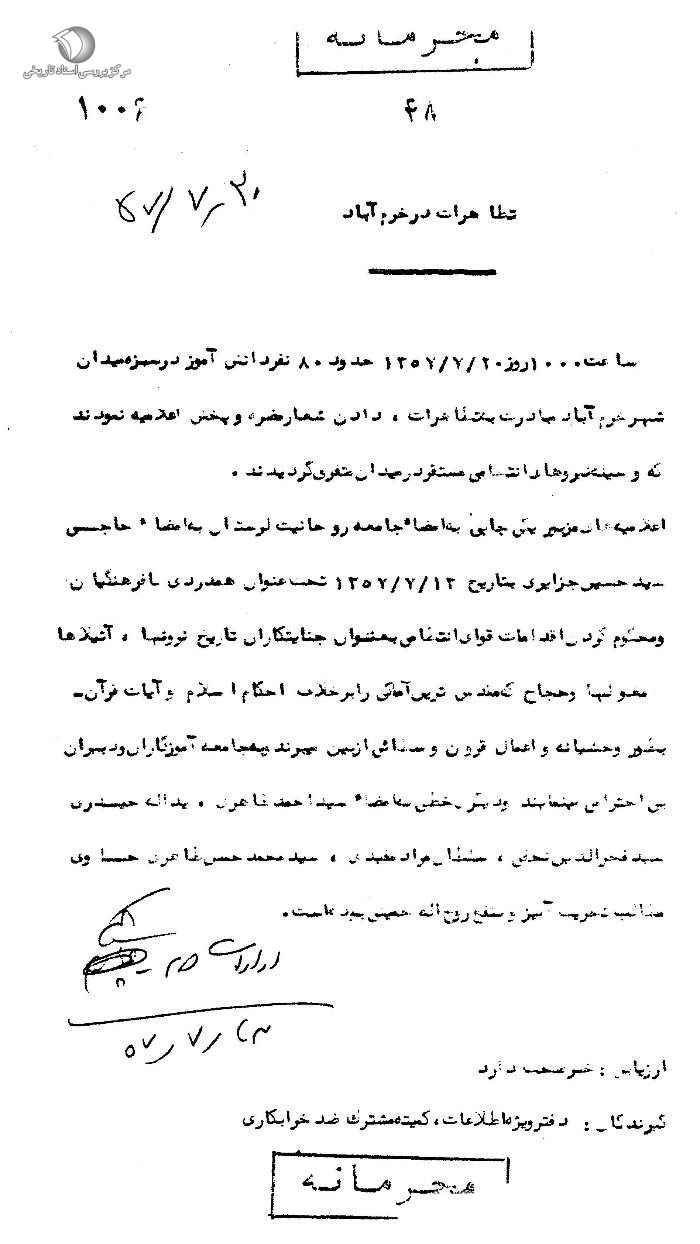 مرکز بررسی اسناد تاریخی
محرمانه
۴۸
۱۰۰۶
۵۷/۷/۳۰
تظاهرات در خرم آباد
ساعت ۱۰۰۰ روز ۱۳۵۷/۷/۲۰ حدود ۸۰ نفر دانش آموز در سبزه میدان
شهر خرم آباد مبادرت بتظاهرات ، دادن شعار مضره و پخش اعلامیه نمودند
که وسیله نیروهای انتظامی مستقر در میدان متفرق گردیدند .
اعلامیه های مزبور یکی چاپی به امضاء جامعه روحانیت لرستان به امضاء حاجی
سید حسین جزایری بتاریخ ۱۳۵۷/۷/۱۲ تحت عنوان همدردی با فرهنگیان
و محکوم کردن اقدامات قوای انتظامی بعنوان جنایتکاران تاریخ نرونها ، آتیلاها
مغولها و حجاج که مقدس ترین را برخلاف احکام اسلام و آیات قرآن ـ
بطور وحشیانه و اعمال قرون از بین میبرند به جامعه آموزگاران و دبیران
بی احترامی مینمایند و دیگری خطی به امضاء سید احمد طاهری ، یداله حیدری
سید فخرالدین ، سلطان مراد مفیدی ، سید محمد حسن طاهری حساوی
مطالب تحریک آمیز و بنفع روح اله خمینی بوده است .
۵۷/۷/
ارزیابی : خبر صحت دارد
گیرندگان : دفتر ویژه اطلاعات ، کمیته مشترک ضد خرابکاری
محرمانه